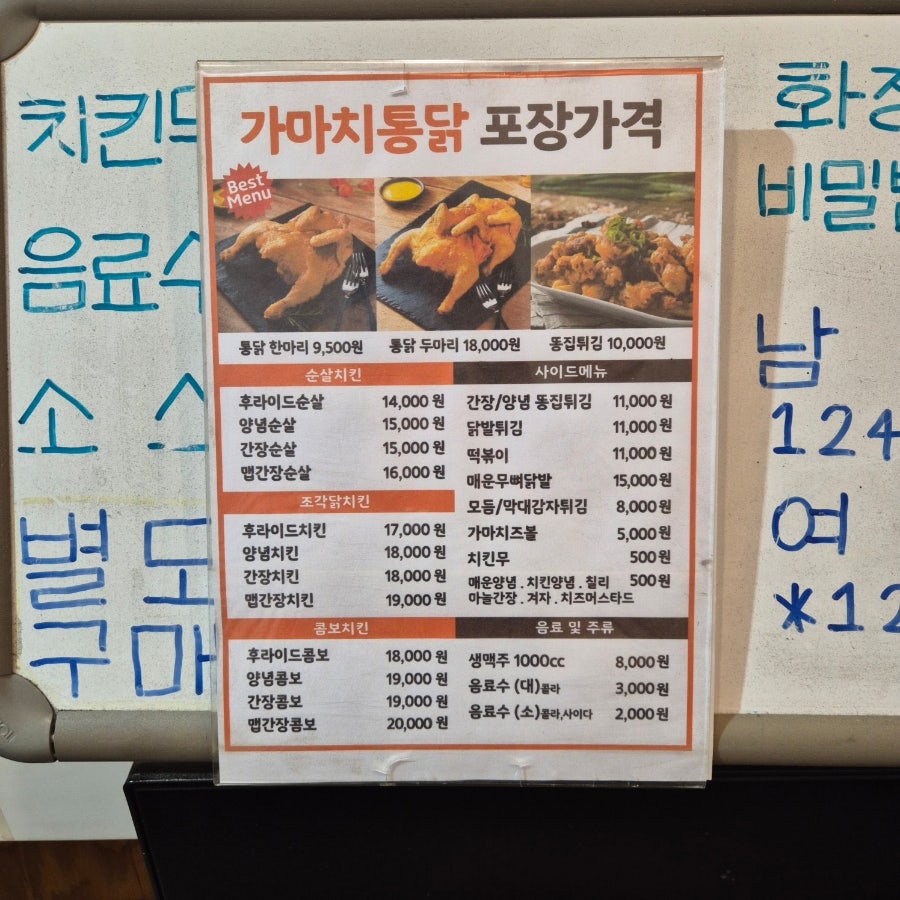 가마치통닭 포장가격
Best
Menu
통닭 한마리 9,500원 통닭 두마리 18,000원 똥집튀김 10,000원
순살치킨
후라이드순살 14,000 원
양념순살 15,000 원
간장순살 15,000 원
맵간장순살 16,000 원
조각닭치킨
후라이드치킨 17,000 원
양념치킨 18,000 원
간장치킨 18,000 원
맵간장치킨 19,000 원
콤보치킨
후라이드콤보 18,000 원
양념콤보 19,000 원
간장콤보 19,000 원
맵간장콤보 20,000 원
사이드메뉴
간장/양념 똥집튀김 11,000 원
닭발튀김 11,000 원
떡볶이 11,000 원
매운무뼈닭발 15,000 원
모듬/막대감자튀김 8,000 원
가마치즈볼 5,000 원
치킨무 500 원
매운양념 . 치킨양념 . 칠리 500 원
마늘간장 . 겨자 . 치즈머스타드
음료 및 주류
생맥주 1000cc 8,000 원
음료수 (대)콜라 3,000 원
음료수 (소)콜라,사이다 2,000 원
치킨
음료수
소
별 도
구 매
화장
비밀
남
124
여
*12